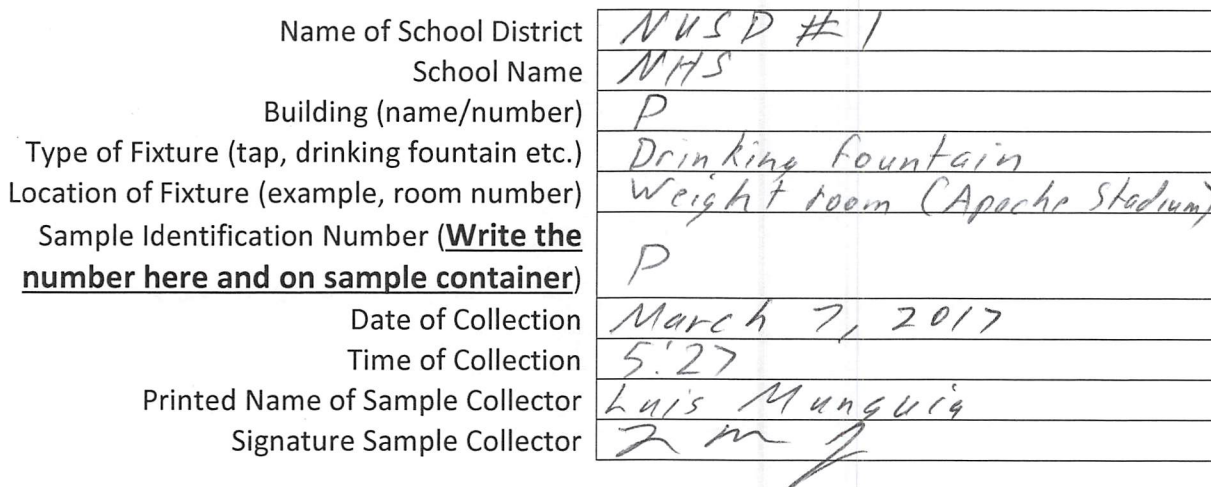 Name of School District NUSD #1
School Name NHS
Building (name/number) P
Type of Fixture (tap, drinking fountain etc.) Drinking fountain
Location of Fixture (example, room number) Weight room (Apache Stadium)
Sample Identification Number (Write the
number here and on sample container) P
Date of Collection March 7, 2017
Time of Collection 5:27
Printed Name of Sample Collector Luis Munguia
Signature Sample Collector